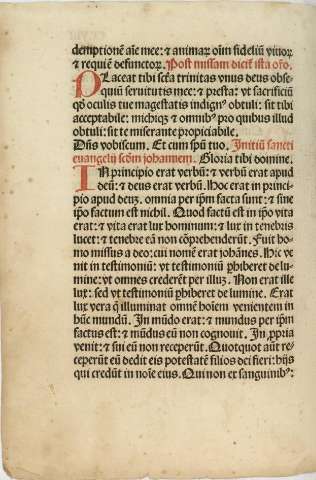 demptionē aīe mee: ⁊ animaꝝ oīm fideliū viuoꝝ
⁊ requiē defunctoꝝ. Post missam dicit̄ ista or̄o.
PLaceat tibi scēa trinitas vnus deus obse-
quiū seruitutis mee: ⁊ presta: vt sacrificiū
qd̄ oculis tue magestatis indignꝰ obtuli: sit tibi
acceptabile: michiqꝫ ⁊ omnibꝰ pro quibus illud
obtuli: sit te miserante propiciabile.
Dn̄s vobiscum. Et cum spū tuo. Initiū sancti
euangelij scdm̄ johannem. Gloria tibi domine.
IN principio erat verbū: ⁊ verbū erat apud
deū: ⁊ deus erat verbū. Hoc erat in princi-
pio apud deuꝫ. omnia per ip̄m facta sunt: ⁊ sine
ip̄o factum est nichil. Quod factū est in ip̄o vita
erat: ⁊ vita erat lux hominum: ⁊ lux in tenebris
lucet: ⁊ tenebre eā non cōprehenderūt. Fuit ho-
mo missus a deo: cui nomē erat johānes. Hic ve
nit in testimoniū: vt testimoniū ꝑhiberet de lu-
mine: vt omnes crederēt per illuꝫ. Non erat ille
lux: sed vt testimoniū ꝑhiberet de lumine. Erat
lux vera q̄ illuminat omnē hoīem venientem in
hūc mundū. In mūdo erat: ⁊ mundus per ip̄m
factus est: ⁊ mūdus eū non cognouit. In ꝓpria
venit: ⁊ sui eū non receperūt. Quotquot aūt re-
ceperūt eū dedit eis potestatē filios dei fieri: hijs
qui credūt in noīe eius. Qui non ex sanguinibꝰ: